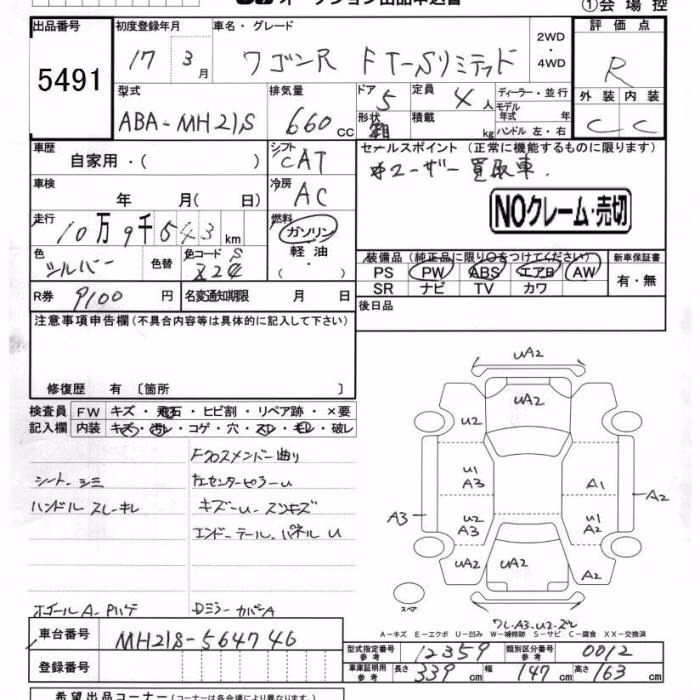 ①会場控
出品番号 初度登録年月 車名・グレード 評価点
5491 17年 3月 ワゴンR FT-Sリミテッド 2WD・4WD R
型式 排気量 ドア 5 定員 4人 ディーラー・並行 外装 内装
ABA-MH21S 660cc 形状 積載 kg モデル年式 年 ハンドル 左・右 C C
車歴 自家用・( ) シフト CAT セールスポイント(正常に機能するものに限ります)
車検 年 月( 日) 冷房 AC ユーザー買取車.
NOクレーム・売切
走行 10万9千543km 燃料 ガソリン・軽油 ( )
色 シルバー 色替 色コード 装備品(純正品に限り○をつけてください) 新車保証書
PS PW ABS エアB AW 有・無
SR ナビ TV カワ
R券 9100円 名変通知期限 月 日 後日品
注意事項申告欄(不具合内容等は具体的に記入して下さい)
修復歴 有〔箇所 〕
検査員 FW キズ・飛石・ヒビ割・リペア跡・×要
記入欄 内装 キズ・汚レ・コゲ・穴・スレ・キレ・破レ
Fクロスメンバー曲り
シート・シミ 左センターピラーU
ハンドル スレ・キレ キズ・U・スリキズ
エンドーテール パネル U
ホイールA・Pハゲ Dミラーカバー A
UA2
UA2
U2
U1 A3 A1
A3 A2
U2 A3 U1 A2
UA2 UA2
A2
スペア
ワレ・A3・U2・ズレ
A-キズ E-エクボ U-凹み W-補修跡 S-サビ C-腐食 XX-交換済
車台番号 MH21S-564746
登録番号
型式指定番号 参考 12359 類別区分番号 参考 0012
車庫証明用 参考 長さ 339cm 幅 147cm 高さ 163cm
希望出品コーナー(コーナーは各会場により異なります)